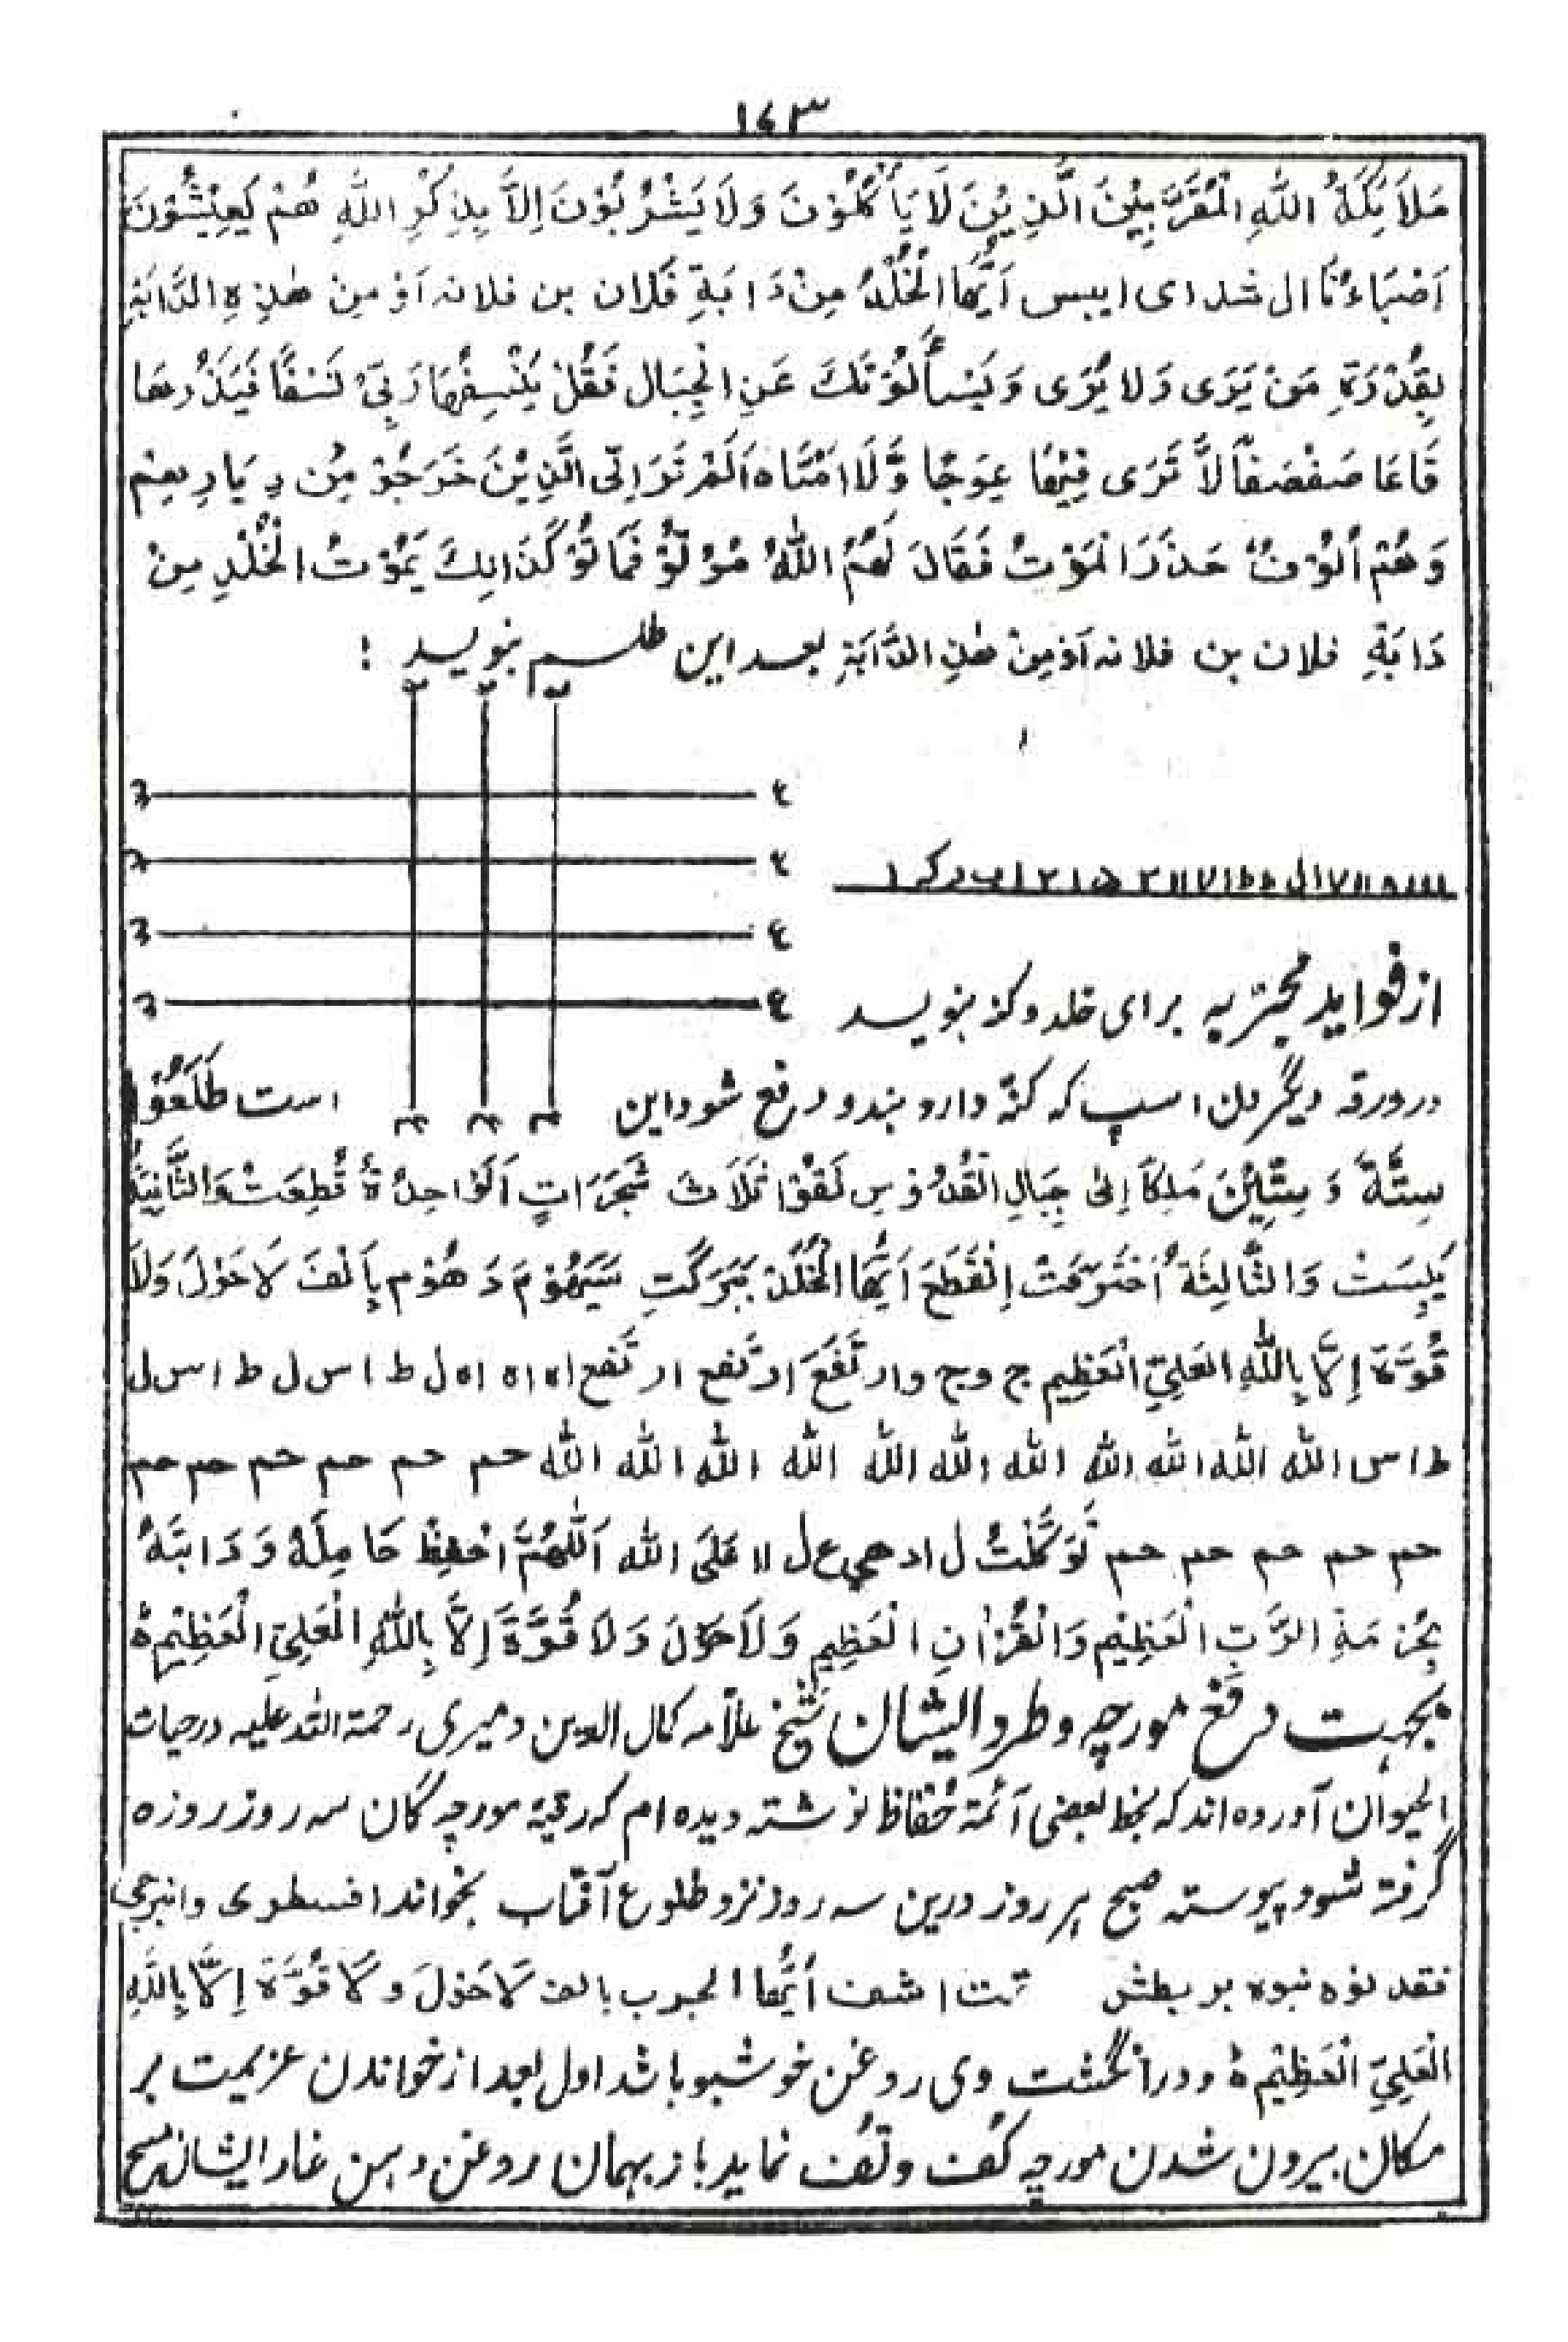 ١٤٣
مَلَائِكَةُ اللّٰهِ الْمُقَرَّبِيْنَ الَّذِيْنَ لَا يَأْكُلُوْنَ وَلَا يَشْرُبُوْنَ اِلَّا بِذِكْرِ اللّٰهِ هُمْ يَعِيْشُوْنَ
ال شدای ایبس اَيُّهَا الْخُلْدُ مِنْ دَابَةِ فَلان بن فلانہ اَوْ مِنْ هٰذِهِ الدَّابَةِ
بِقُدْرَةِ مَنْ يَرَى وَلا يُرَى وَيَسْأَلُوْنَكَ عَنِ الْجِبَالِ فَقُلْ يَنْسِفُهَا رَبِّىْ نَسْفًا فَيَذَرُهَا
قَاعًا صَفْصَفًا لَّا تَرَى فِيْهَا عِوَجًا وَّلَا اَمْتًا ه اَلَمْ تَرَ اِلَى الَّذِيْنَ خَرَجُوْ مِنْ دِيَارِهِمْ
وَهُمْ اُلُوْفٌ حَذَرَ الْمَوْتُ فَقَالَ لَهُمُ اللّٰهُ مُوْتُوْ فَمَاتُوْ كَذَالِكَ يَمُوْتُ الْخُلْدِ مِنْ
دَابَةِ فلان بن فلانہ اَوْ مِنْ هٰذِ الدَّابَةِ بعد این طلسم بنویسد :
٤
٤
٤
٤
از فواید مجتربہ برای خلد وکنہ بنویسد
در ورقہ دیگر بدن اسپ کہ کنّہ دارد بندد رفع شود این است طَلَعُوْا
سِتَّةَ وَ سِتِّيْنَ مَلِكًا اِلىٰ جِبَالِ الْقُدُوْسِ لَقُوْا ثَلَاثَ شَجَرَاتٍ اَلْوَاحِدُةُ قُطِعَتْ وَالثَّانِيَةُ
يَبِسَتْ وَالثَّالِثَةُ اُحْتَرَقَتْ اِنْقَطَعَ اَيُّهَا الْخُلْدُ بَبَرَكَتِ سَيَهُوْمَ دَهُوْم بِاَلْفَ لَاحَوْلَ وَلَا
قُوَّةَ اِلَّا بِاللّٰهِ العَلِيّ الْعَظِيمِ ج وج وارتَفَعَ ارتَفع ارتَفع اه اه اه ل ط اس ل ط اس ل
ط اس الله الله الله الله الله الله الله الله الله الله الله حم حم حم حم حم حم
حم حم حم حم حم تَوَكَّلْتُ عَلَى الله اَللّٰهُمَّ احْفِظْ حَامِلَهُ وَدَابَتَهُ
بِحُرْمَةِ الرَّبِ الْعَظِيْمِ وَالْقُرْاٰنِ الْعَظِيمِ وَلَاحَوْلَ وَلَا قُوَّةَ اِلَّا بِاللّٰهِ الْعَلِيِّ الْعَظِيْمِ ۀ
بجہت رفع مورچہ وطرد ایشان شیخ علّامہ کمال الدین دمیری رحمۃ اللہ علیہ در حیات
الحیوان آوردہ اند کہ بخط بعضی آئمۃ حُفّاظ نوشتہ دیدہ ام کہ مورچہ گان سہ روز روزہ
گرفتہ شود پیوستہ صبح ہر روز درین سہ روز نزد طلوع آفتاب بخواند
فقد بربطش تت اشف اَيُّهَا الجرب بالف لَاحَوْلَ وَ لَا قُوَّةَ اِلَّا بِاللّٰهِ
الْعَلِيِّ الْعَظِيْمِ ۀ و در انگشت وی روغن خوشبو باشد اول بعد از خواندن عزیمت بر
مکان بیرون شدن مورچہ کُف وتُف نماید باز بہمان روغن دہن غار ایشان مسح